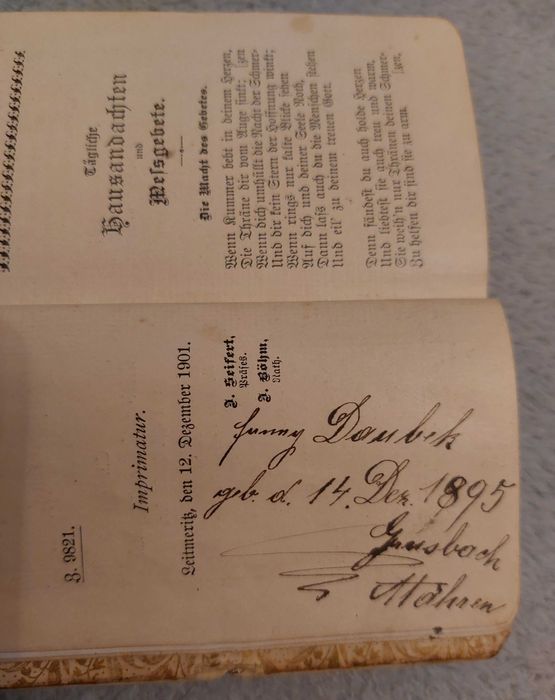 Z. 9821.
Imprimatur.
Leitmeritz, den 12. Dezember 1901.
J. Seifert,
Präses.
J. Böhm,
Rath.
Fanny Daubek
geb. d. 14. Dez. 1895
Grusbach
Mähren
Tägliche
Hausandachten
und
Meßgebete.
Die Macht des Gebetes.
Wenn Kummer bebt in deinem Herzen,
Die Thräne dir vom Auge sinkt; [zen
Wenn dich umhüllt die Nacht der Schmer-
Und dir kein Stern der Hoffnung winkt;
Wenn rings nur kalte Blicke sehen
Auf dich und deiner Seele Noth,
Dann laß auch du die Menschen stehen
Und eil' zu deinem treuen Gott.
Denn fändest du auch holde Herzen
Und liebtest sie auch treu und warm,
Sie weih'n nur Thränen deinen Schmer-
Zu helfen dir sind sie zu arm. [zen,